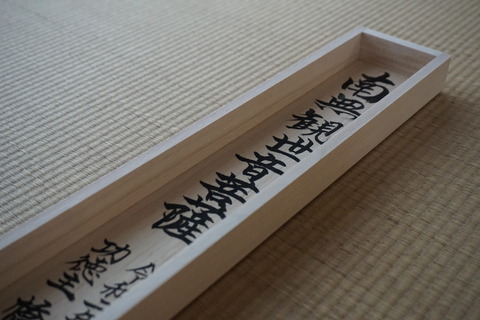 南無観世音菩薩
令和
功徳主